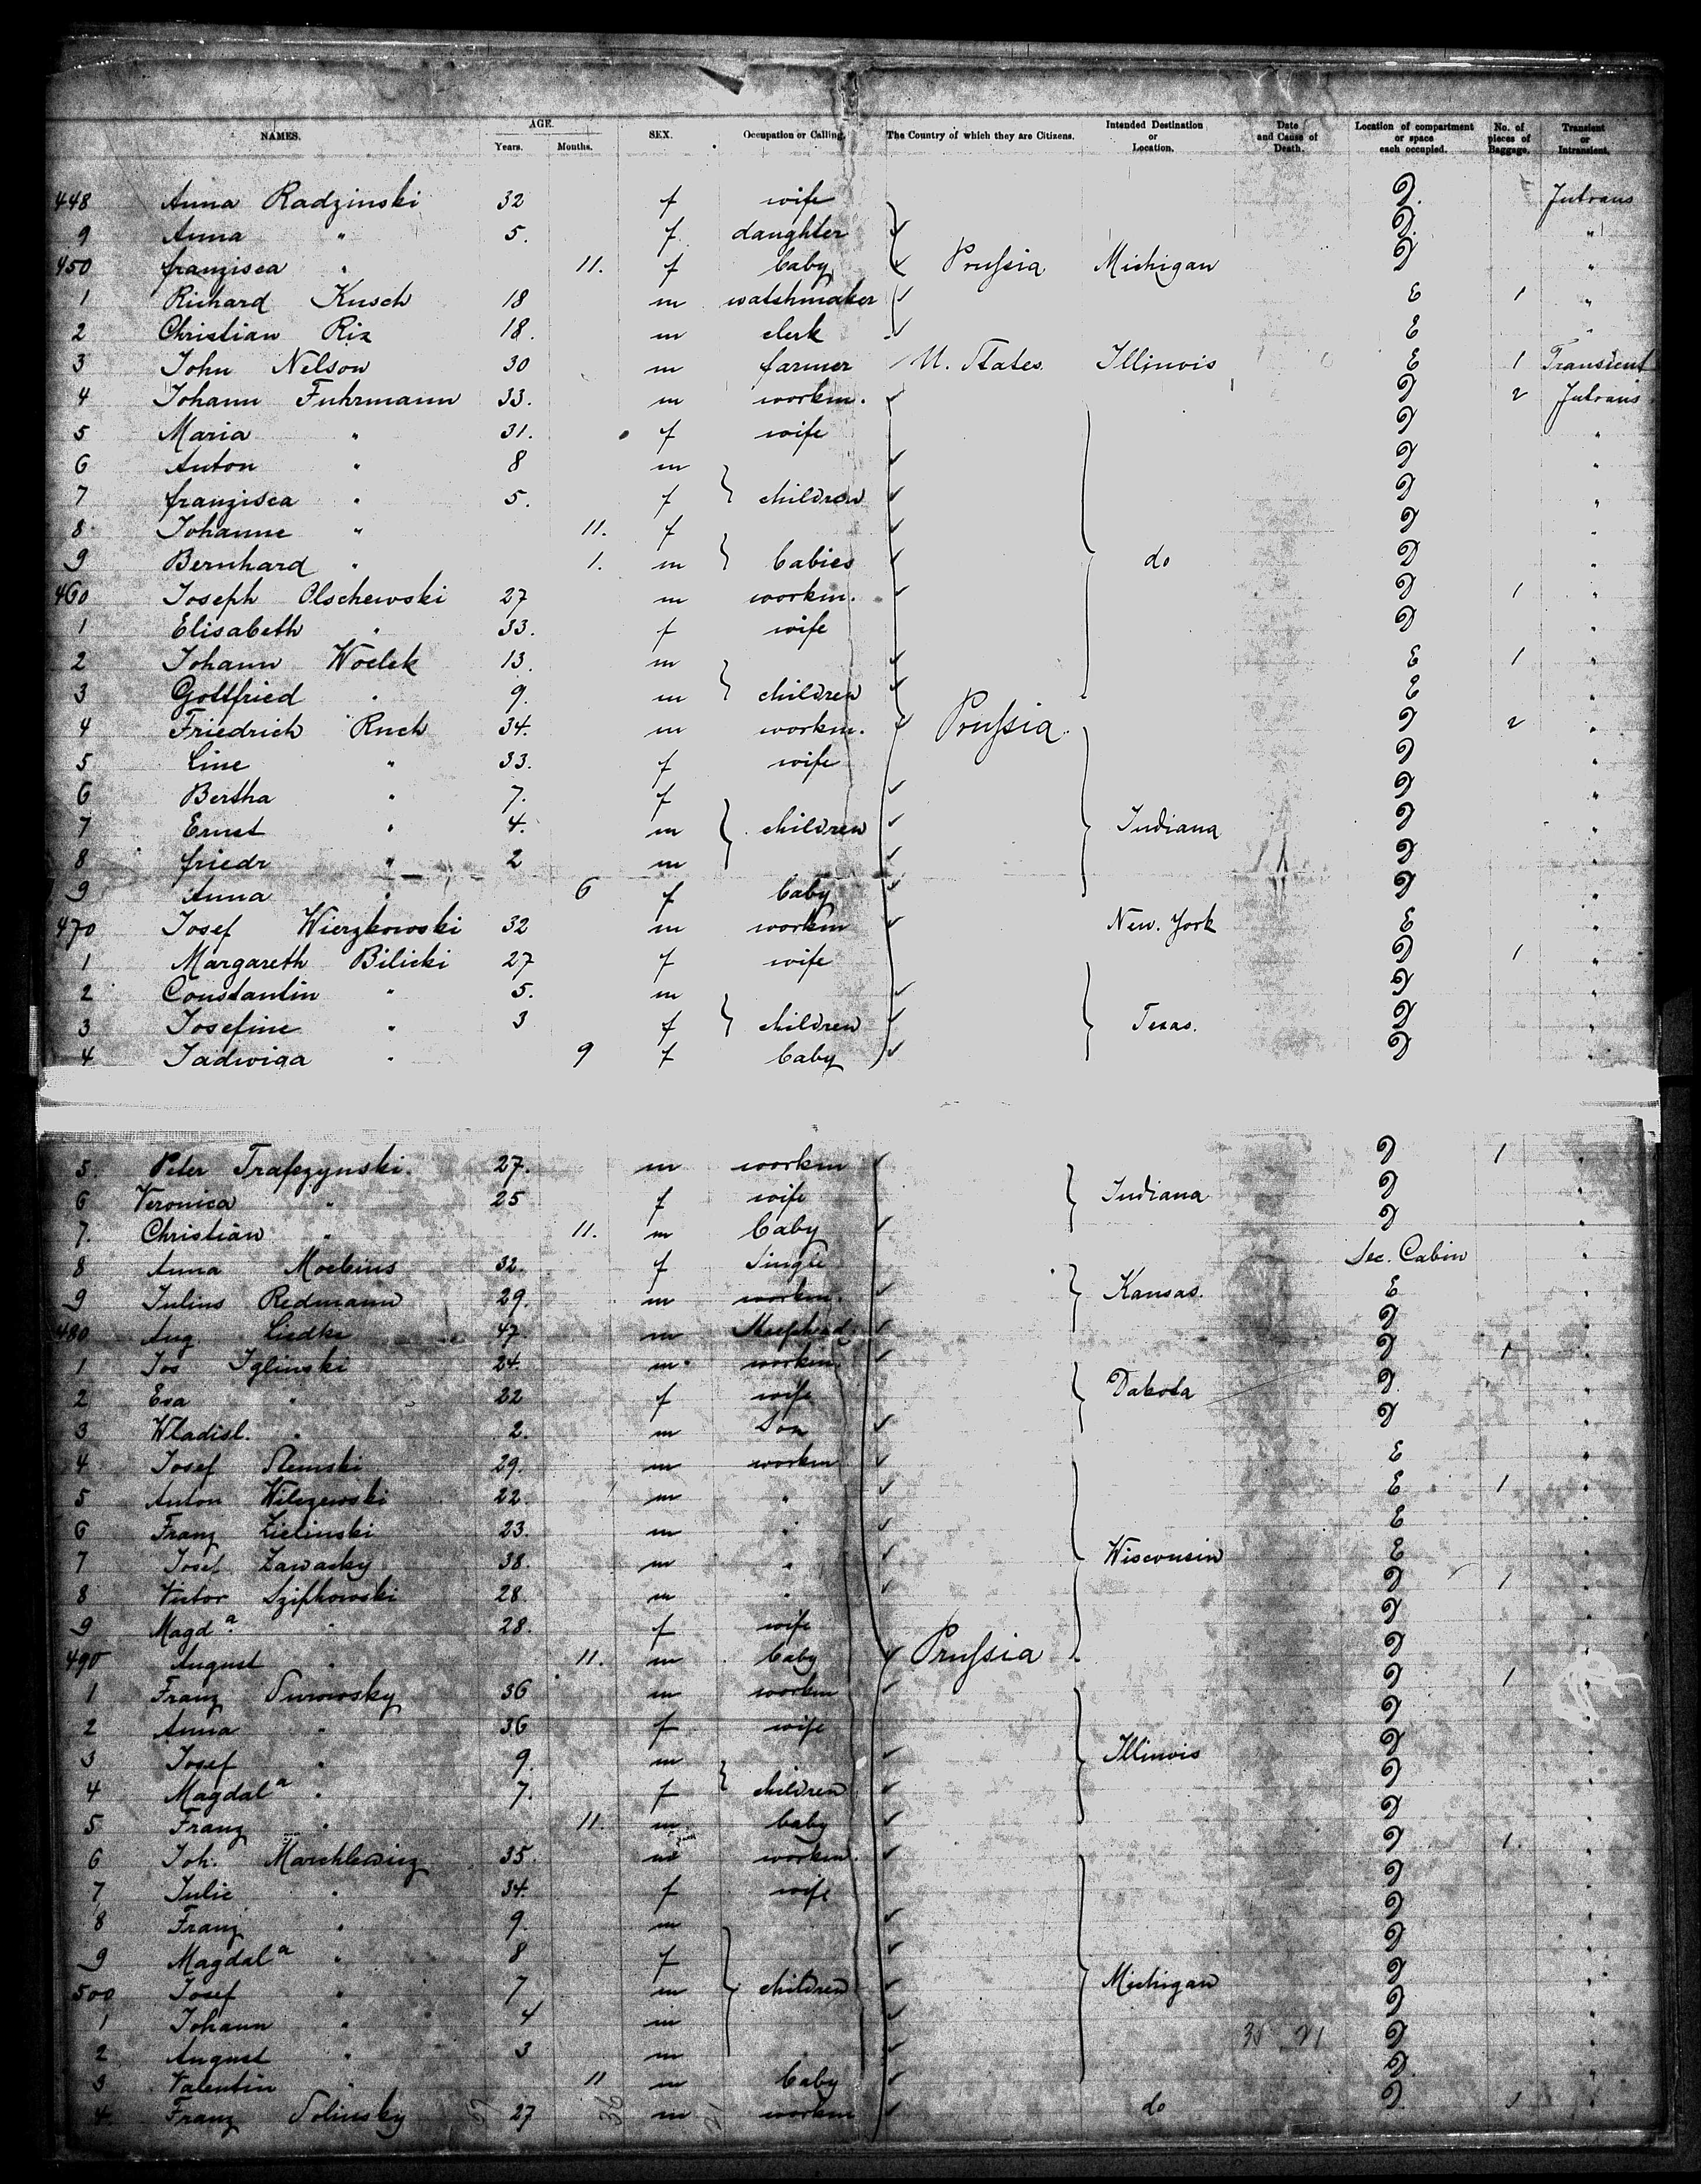 NAMES. AGE. Years. Months. SEX. Occupation or Calling. The Country of which they are Citizens. Intended Destination or Location. Date and Cause of Death. Location of compartment or space each occupied. No. of pieces of Baggage. Transient or Intransient.
448 Anna Radzinski 32 f wife D. Intrans
9 Anna " 5. f. daughter D. "
450 franzisca " 11. f baby Prussia Michigan D "
1 Richard Kusch 18 m watshmaker E 1 "
2 Christian Rix 18. m clerk E "
3 John Nelson 30 m farmer U. States. Illinois E 1 Transient
4 Johann Fuhrmann 33. m workm. D 2 Intrans
5 Maria " 31. f wife D "
6 Anton " 8 m D "
7 franzisca " 5. f children D "
8 Johanne " 11. f D "
9 Bernhard " 1. m babies do D "
460 Joseph Olschewski 27 m workm. D 1 "
1 Elisabeth " 33. f wife D "
2 Johann Woelek 13. m E 1 "
3 Gottfried " 9. m children E "
4 Friedrich Ruch 34. m workm. Prussia. D 2 "
5 Line " 33. f wife D "
6 Bertha " 7. f D "
7 Ernst " 4. m children Indiana D "
8 friedr " 2 m D "
9 Anna " 6 f baby D "
470 Josef Wierzkowski 32 m workm New. York E "
1 Margareth Bilicki 27 f wife D 1 "
2 Constantin " 5. m D "
3 Josefine " 3 f children Texas. D "
4 Jadwiga " 9 f baby D "
5. Peter Trapczynski. 27. m workm D 1 "
6 Veronica " 25 f wife Indiana D "
7. Christian " 11. m baby D "
8 Anna Moebius 32. f Single Sec. Cabin "
9 Julius Redmann 29. m workm. Kansas. E "
480 Aug. Liedke 47. m D
1 Jos Iglinski 24. m workm. D 1 "
2 Eva " 22 f wife Dakota D. "
3 Wladisl. " 2. m Son D "
4 Josef 29. m workm E "
5 Anton Wilczewski 22. m " E 1 "
6 Franz Zielinski 23. m " E "
7 Josef Zawacky 38. m " Wisconsin E "
8 Victor Szipkowski 28. m " D 1 "
9 Magda. " 28. f wife D "
490 August " 11. m baby Prussia D "
1 Franz Surowsky 36 m workm D 1 "
2 Anna " 36 f wife D "
3 Josef " 9. m Illinois D "
4 Magdala " 7. f children D "
5 Franz " 11. m baby D "
6 Joh. Marchlewicz 35. m workm. D 1. "
7 Julie " 34. f wife D "
8 Franz " 9. m D "
9 Magdala " 8 f D "
500 Josef " 7 m children Michigan D "
1 Johann " 4 m D "
2 August " 3 m D "
3 Valentin " 11 m baby D "
4. Franz Solinsky 27 m workm do D. 1 "